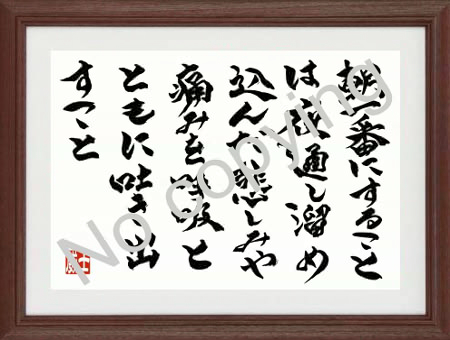 朝一番にすること
は夜通し溜め
込んだ悲しみや
痛みを呼吸と
ともに吐き出
すこと
No copying